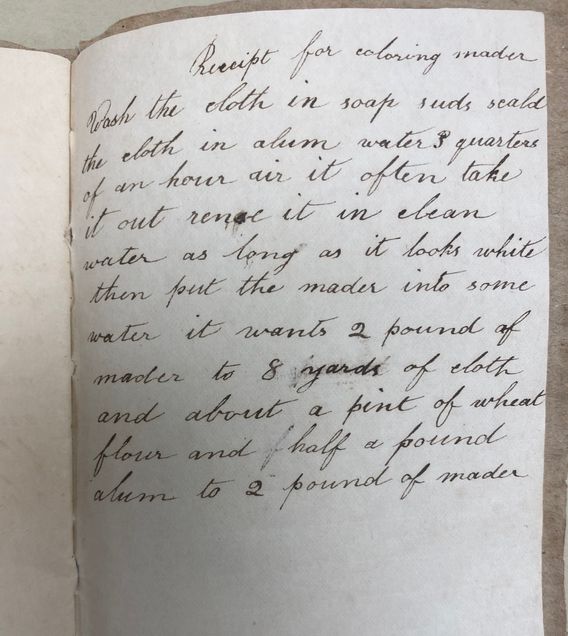 Receipt for coloring mader
Wash the cloth in soap suds scald
the cloth in alum water 3 quarters
of an hour air it often take
it out rence it in clean
water as long as it looks white
then put the mader into some
water it wants 2 pound of
mader to 8 yards of cloth
and about a pint of wheat
flour and half a pound
alum to 2 pound of mader